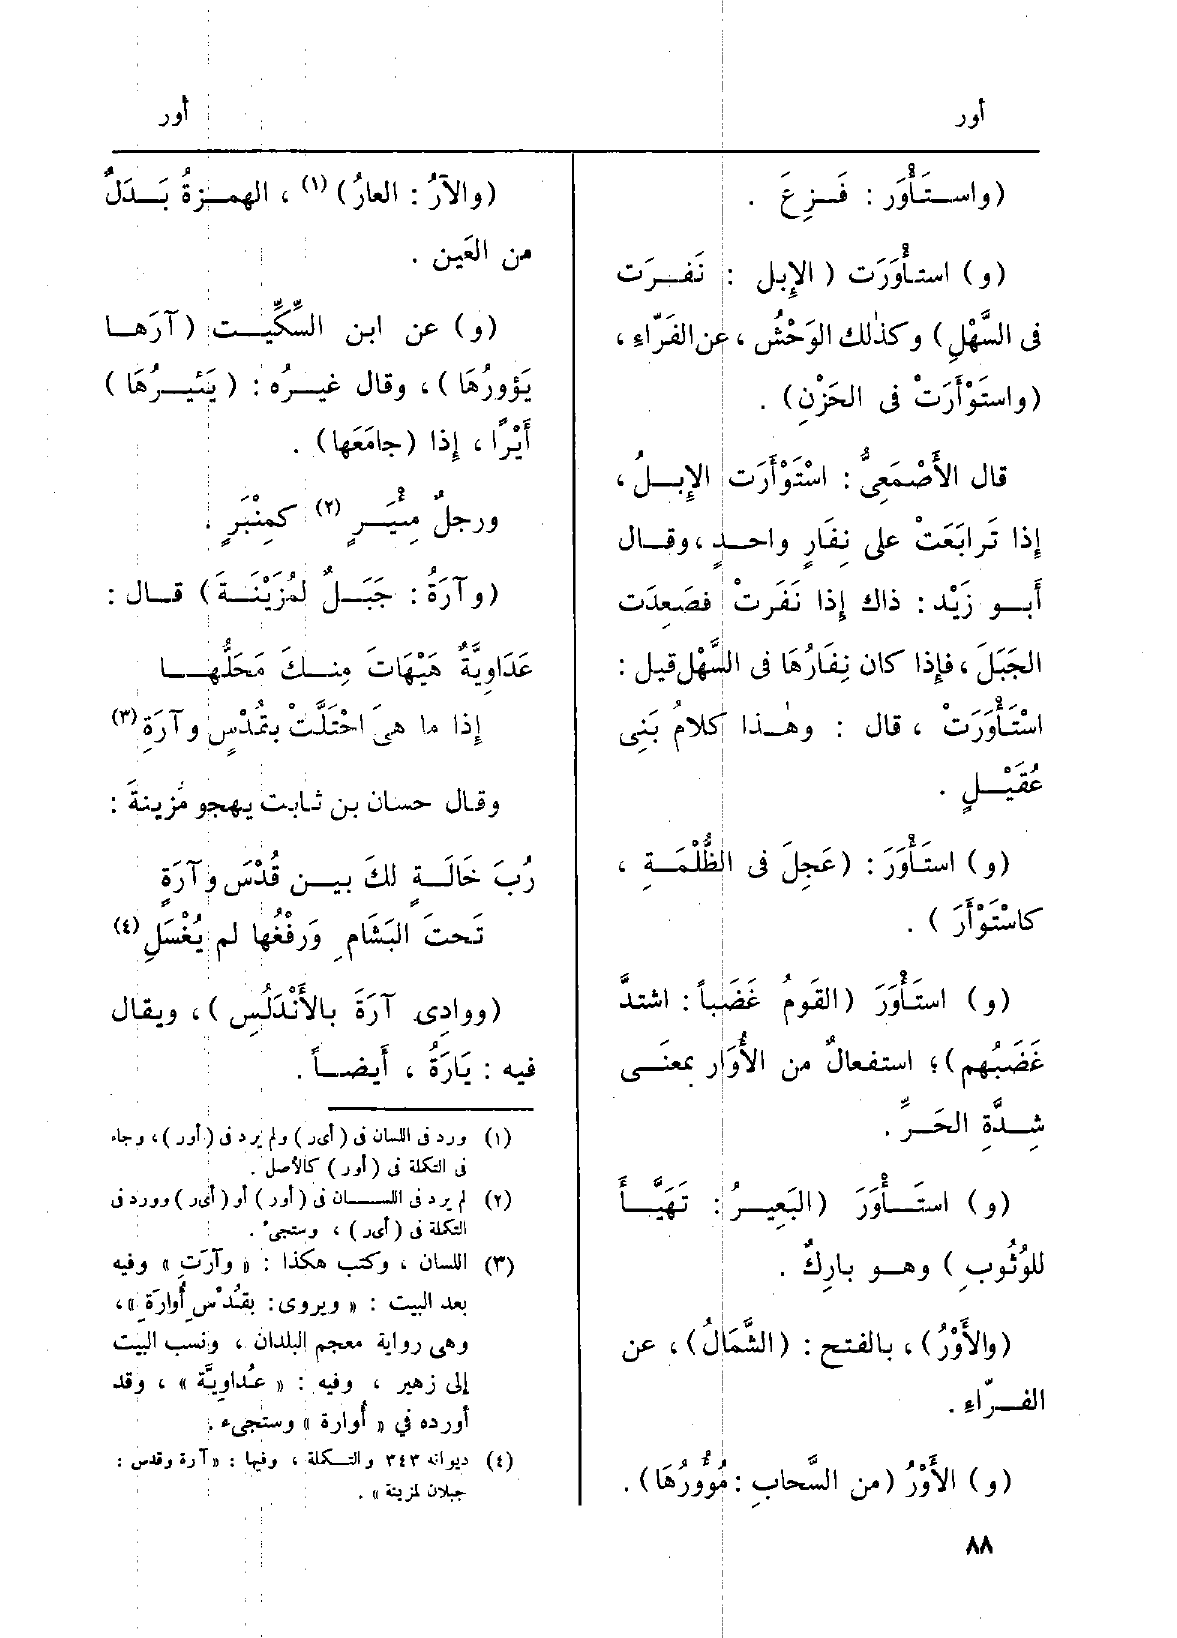 أور
أور
(واستَأْوَر : فَزِعَ .
(و) استأْوَرَت (الإِبل : نَفَرَت
فى السَّهْلِ) وكذٰلك الوَحْشُ ، عن الفَرّاءِ ،
(واستَوْأَرَتْ فى الحَزْنِ) .
قال الأَصْمَعِىُّ : اسْتَوْأَرَت الإِبلُ ،
إِذا تَرابَعَتْ على نِفَارٍ واحدٍ ، وقال
أَبو زَيْد : ذاك إِذا نَفَرتْ فصَعِدَت
الجَبَلَ ، فإِذا كان نِفَارُهَا فى السَّهْل قيل :
اسْتَأْوَرَتْ ، قال : وهٰذا كلامُ بَنِى
عُقَيْلٍ .
(و) استَأْوَرَ : (عَجِلَ فى الظُّلْمَةِ ،
كاسْتَوْأَرَ ) .
(و) استَأْوَرَ (القومُ غَضَباً : اشتدَّ
غَضَبُهم) ؛ استفعالٌ من الأُوَار بمعنَى
شِدَّةِ الحَرِّ .
(و) استَأْوَرَ (البَعِيرُ : تَهَيَّأَ
للوُثُوبِ ) وهو بارِكٌ .
(والأَوْرُ) ، بالفتح : (الشَّمَالُ) ، عن
الفرّاءِ .
(و) الأَوْرُ (من السَّحابِ : مُؤُورُهَا) .
(والآرُ : العارُ) (١) ، الهمزةُ بَدَلٌ
من العَين .
(و) عن ابن السِّكِّيت (آرَها
يَؤُورُهَا) ، وقال غيرُه : (يَئيرُهَا )
أَيْرًا ، إِذا (جامَعَها) .
ورجلٌ مِئْيَرٍ (٢) كمِنْبَرٍ .
(وآرَةُ : جَبَلٌ لمُزَيْنَةَ) قال :
عَدَاوِيَّةٌ هَيْهَاتَ مِنكَ مَحَلُّها
إِذا ما هىَ احْتَلَّتْ بقُدْسٍ وآرَةِ (٣)
وقال حسان بن ثابت يهجو مُزينةَ :
رُبَ خَالَةٍ لكَ بين قُدْسَ وآرَةٍ
تَحتَ البَشَامِ ورَفْغُها لم يُغْسَلِ (٤)
(ووادِى آرَةَ بالأَنْدَلُسِ) ، ويقال
فيه : يَارَةُ ، أَيضاً .
(١) ورد فى اللسان فى (أير) ولم يرد فى (أور) ، وجاء
فى التكلة فى (أور) كالأصل .
(٢) لم يرد فى اللسان فى (أور) أو (أير) وورد فى
التكلة فى (أير) ، وستجىء .
(٣) اللسان ، وكتب هكذا : « وآرَتِ » وفيه
بعد البيت : « ويروى : بقُدْسِ أُوارَةِ » ،
وهى رواية معجم البلدان ، ونسب البيت
إلى زهير ، وفيه : « عُداوِيَّة » ، وقد
أورده في « أُوارة » وستجىء .
(٤) ديوانه ٣٤٣ والتكلة ، وفيها : « آرة وقدس :
جبلان لمزينة » .
٨٨